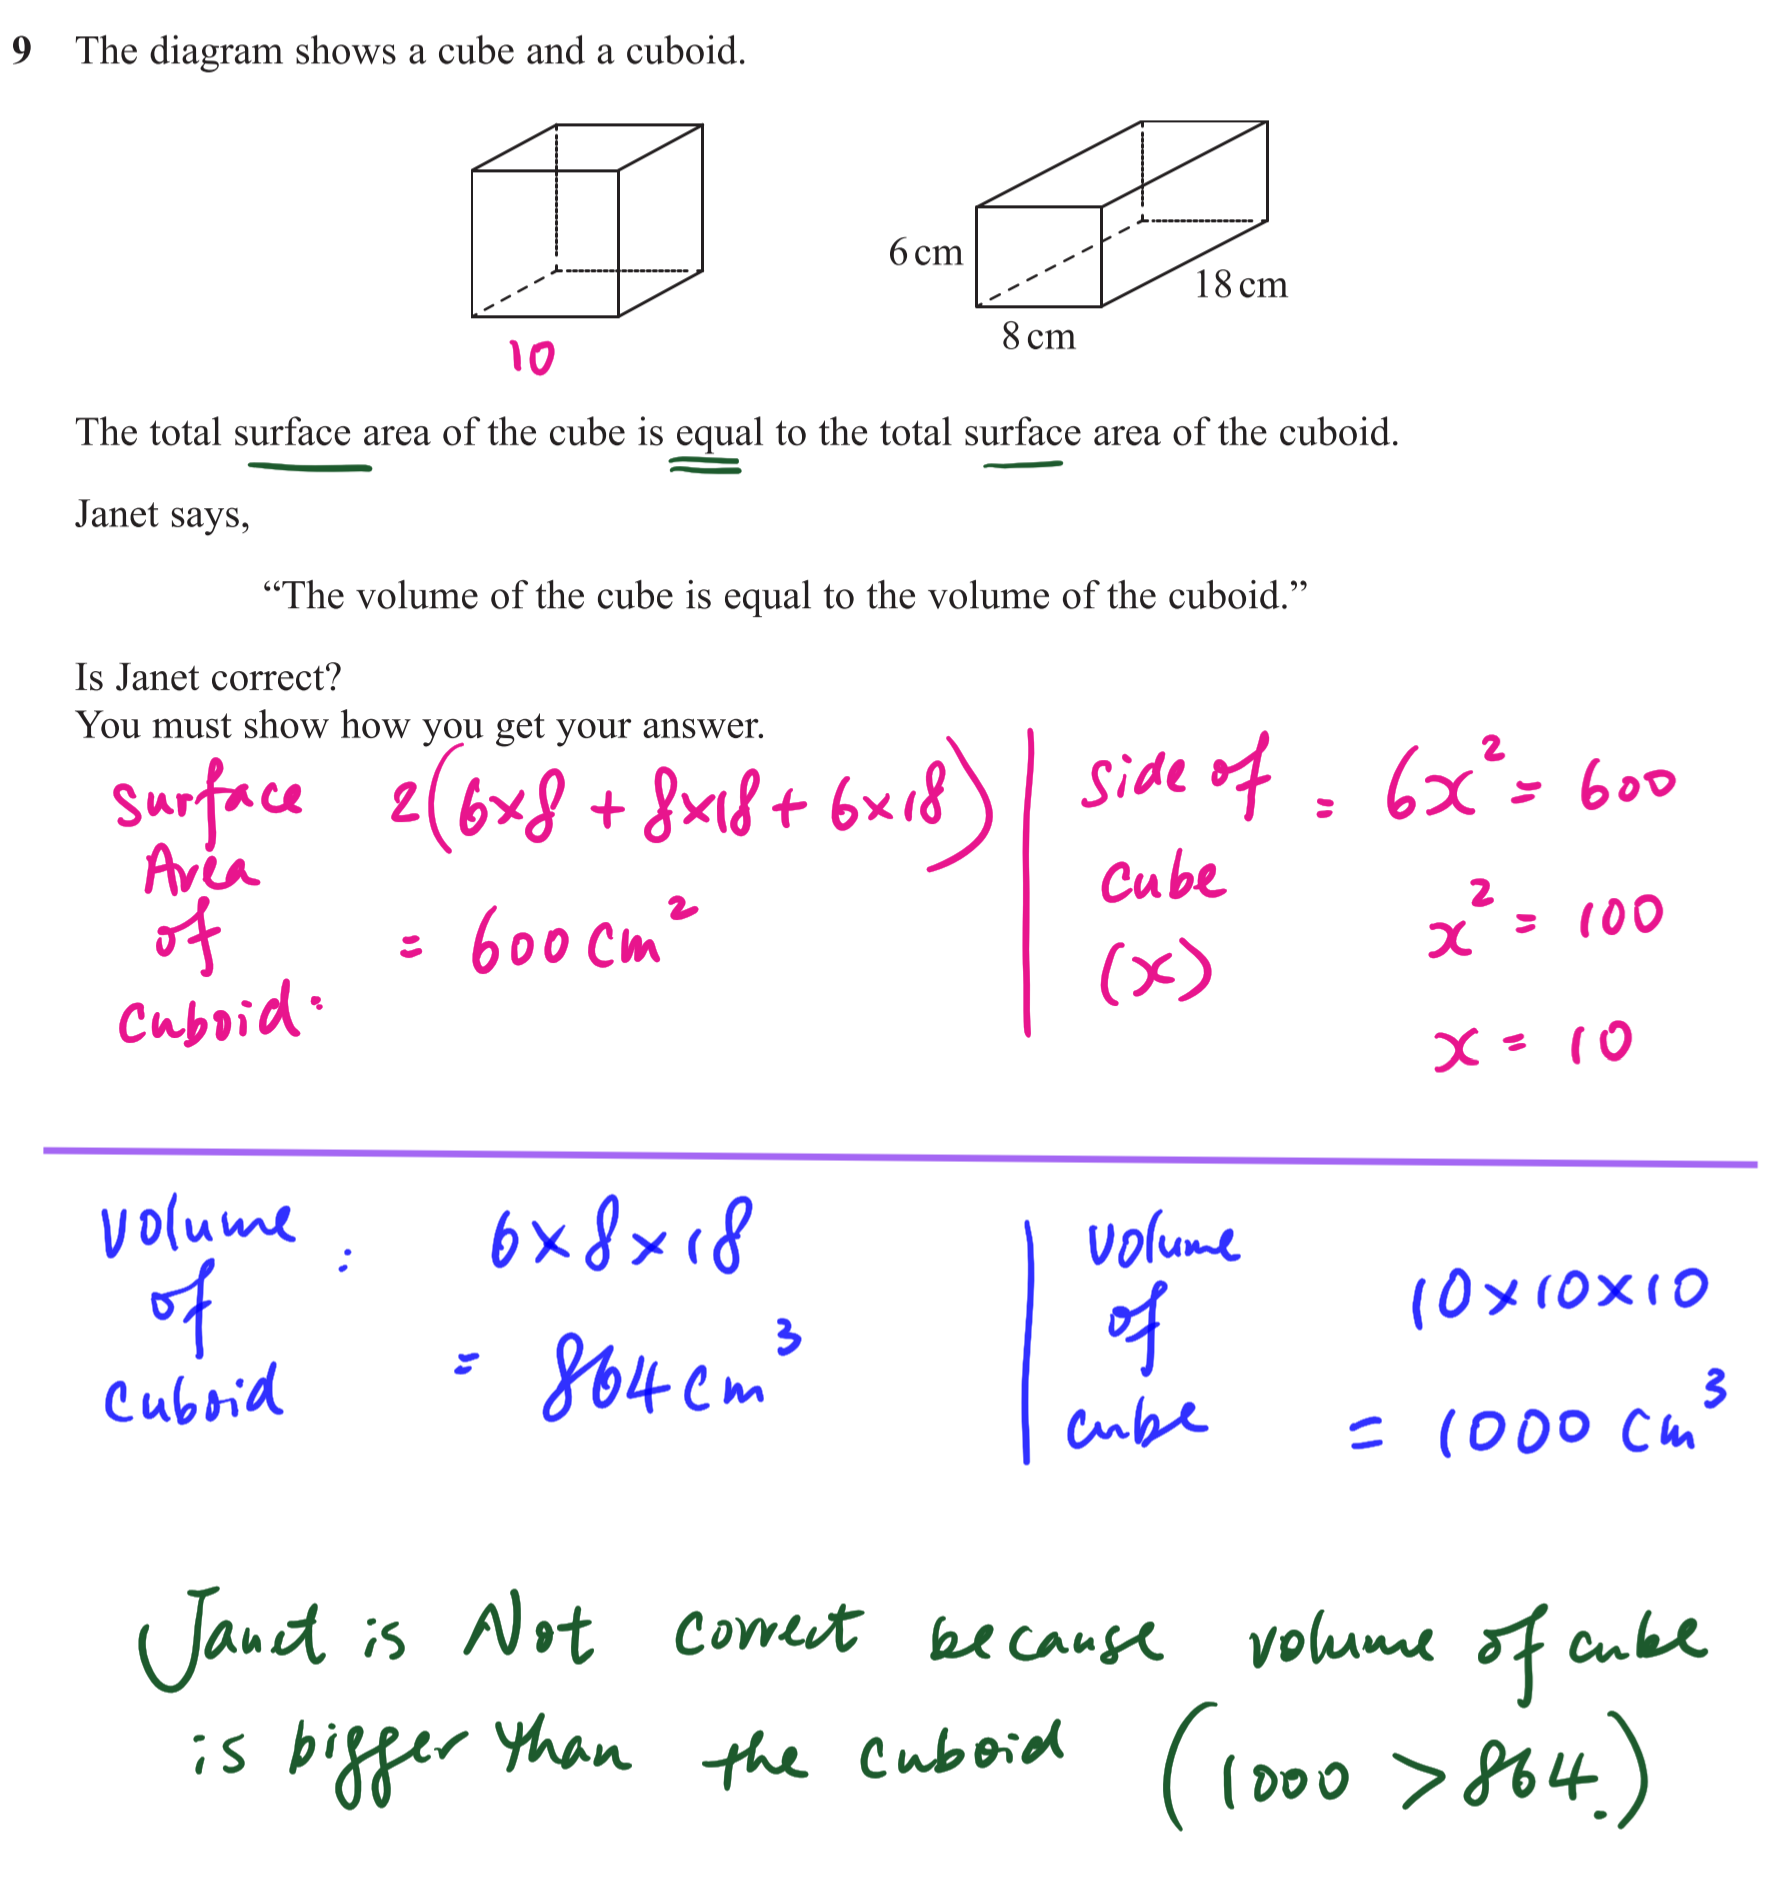 9 The diagram shows a cube and a cuboid.
6 cm
18 cm
8 cm
10
The total surface area of the cube is equal to the total surface area of the cuboid.
Janet says,
“The volume of the cube is equal to the volume of the cuboid.”
Is Janet correct?
You must show how you get your answer.
surface
Area
of
cuboid:
2(6×8 + 8×18 + 6×18)
= 600 cm²
side of
cube
(x)
= 6x² = 600
x² = 100
x = 10
volume
of
cuboid
: 6×8×18
= 864 cm³
volume
of
cube
10×10×10
= 1000 cm³
Janet is Not correct because volume of cube
is bigger than the cuboid (1000 > 864.)